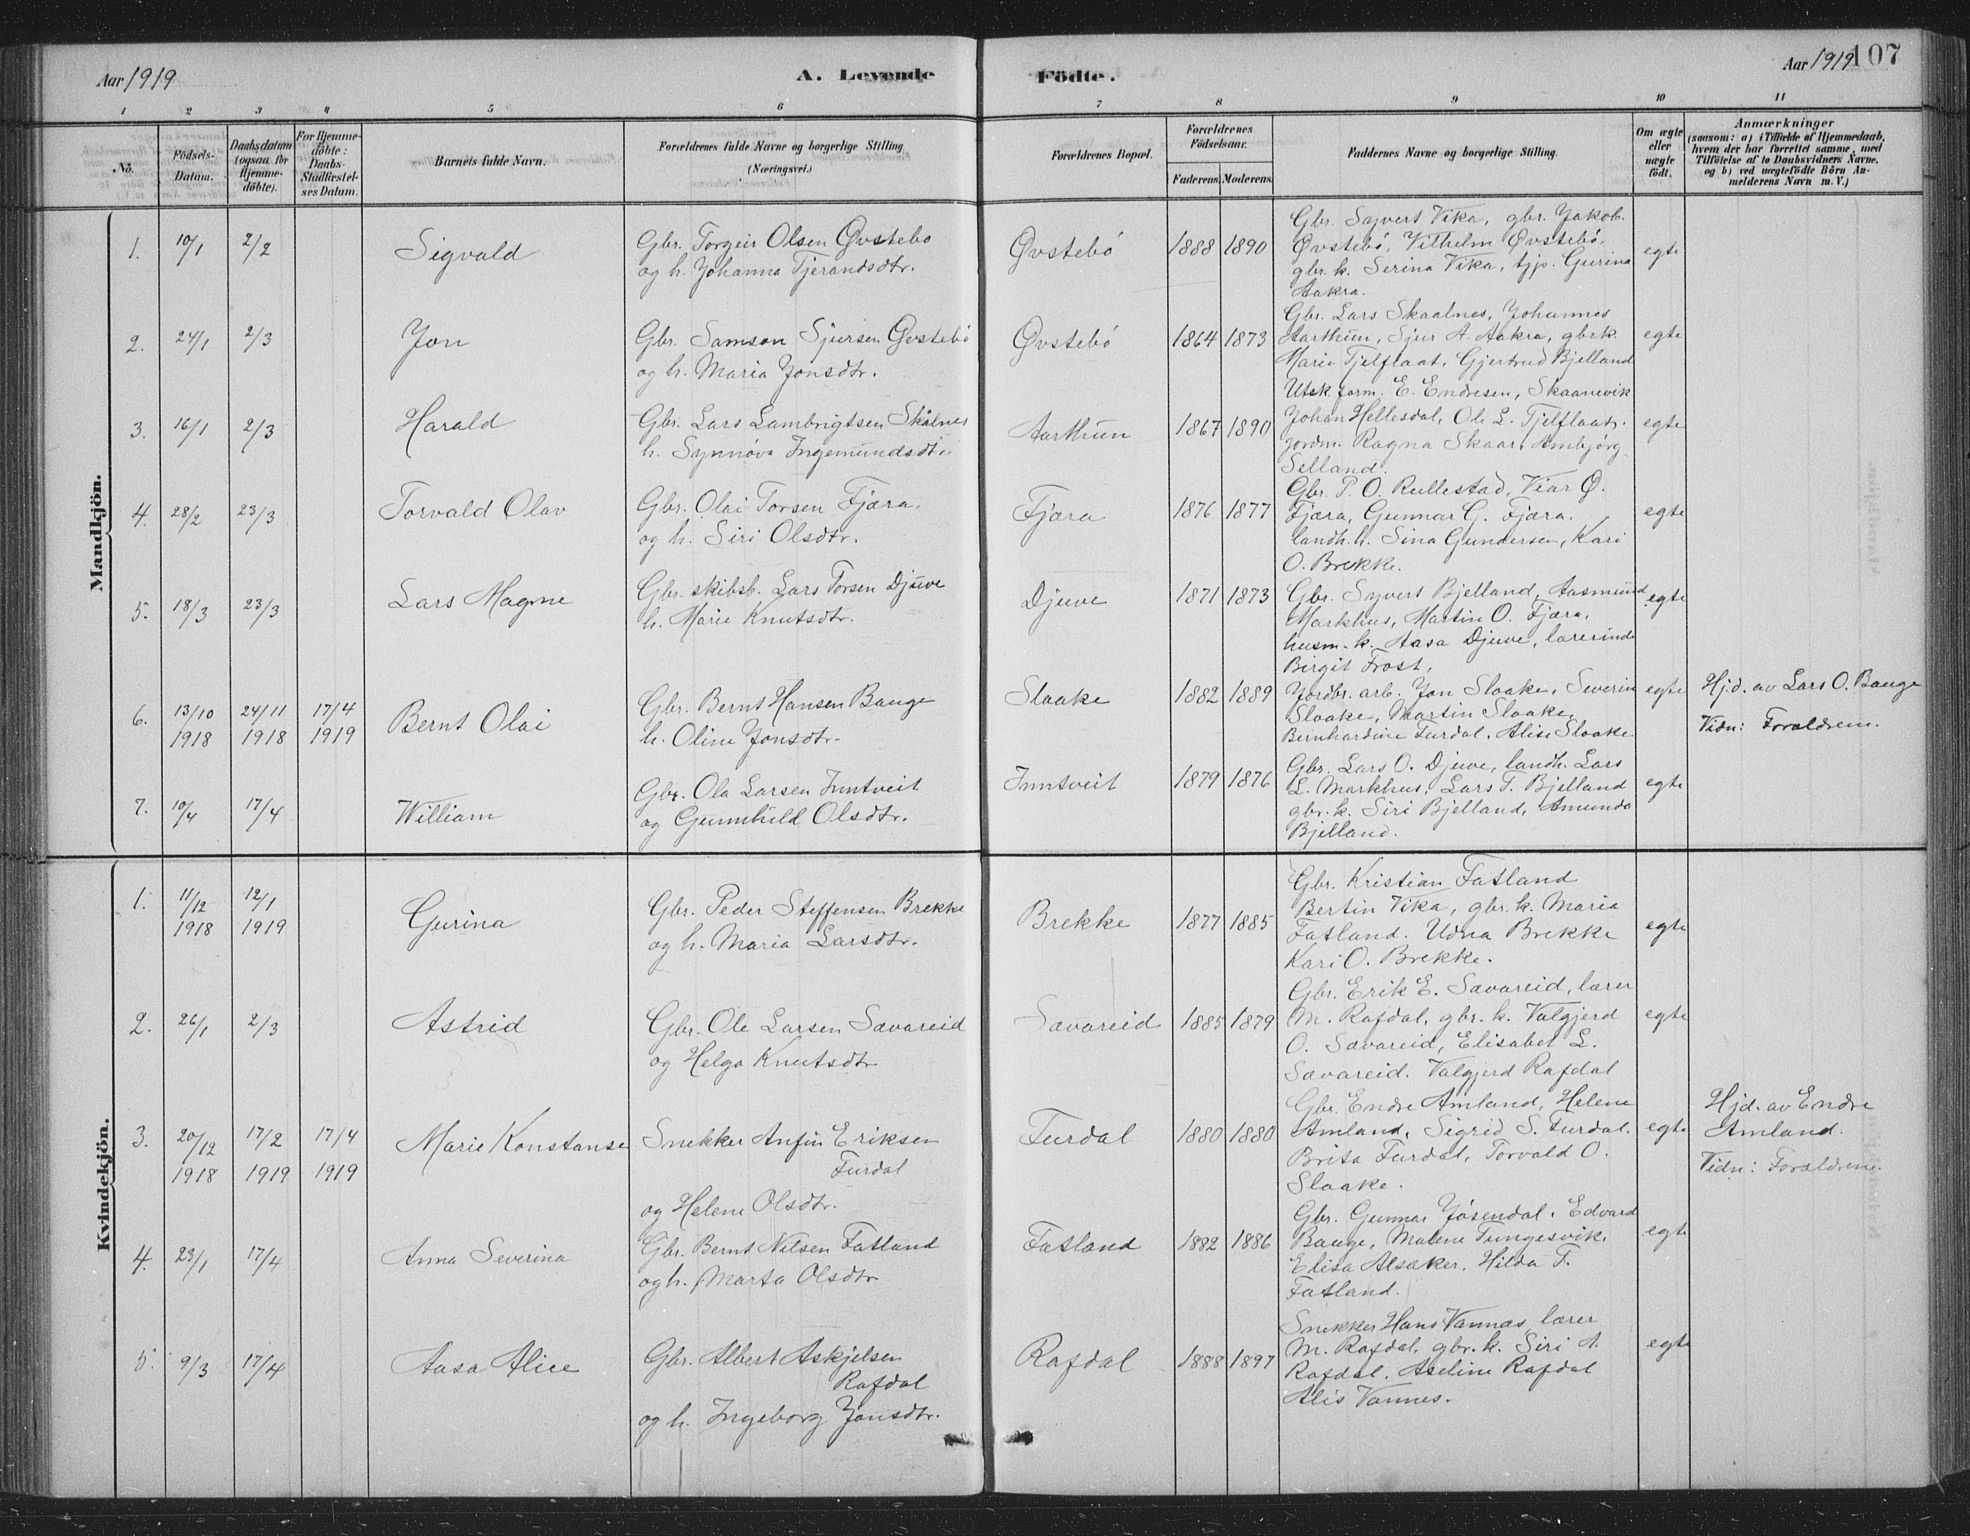 Aar 1919
A. Levende
Födte.
Aar 1919
107
1 2 3 4 5 6 7 8 9 10 11
No.
Födsels-
Datum.
Daabsdatum
(ogsaa for
Hjemme-
döbte).
For Hjemme-
döbte:
Daabs-
Stadfæstel-
ses Datum.
Barnets fulde Navn.
Forældrenes fulde Navne og borgerlige Stilling
(Næringsvei.)
Forældrenes Bopæl.
Forældrenes
Födselsaar.
Faderens.
Moderens.
Faddernes Navne og borgerlige Stilling.
Om ægte
eller
uægte
födt.
Anmærkninger
(saasom: a) i Tilfælde af Hjemmedaab,
hvem der har forrettet samme, med
Tilföielse af to Daabsvidners Navne,
og b) ved uægtefödte Börn An-
melderens Navn m. V.)
Mandkjön.
1. 10/1 2/2 Sigvald
Gbr. Torgeir Olsen Øvstebø
og h. Johanna Tjerandsdtr.
Øvstebø 1888 1890
Gbr. Syvert Vika, gbr. Jakob
Øvstebø, Vilhelm Øvstebø,
gbr. k. Serina Vika, tjp. Gurina
Aakra.
egte
2. 24/1 2/3 Jon
Gbr. Samson Sjursen Øvstebø
og h. Maria Jonsdtr.
Øvstebø 1864 1873
Gbr. Lars Skaalnes, Johannes
Aarthun, Sjur A. Aakra, gbr.k.
Marie Tjelflaat, Gjertrud Bjelland
egte
3. 16/1 2/3 Harald
Gbr. Lars Lambrigtsen Skålnes
h. Synnöva Ingemundsdtr.
Aarthun 1867 1890
Utsk.form. E. Endresen, Skaanevik
Johan Hellesdal, Ole L. Tjelflaat.
jordm. Ragna Skaar, Ambjörg
Selland.
egte
4. 28/2 23/3 Torvald Olav
Gbr. Olai Torsen Fjæra.
og h. Siri Olsdtr.
Fjæra 1876 1877
Gbr. P. O. Rullestad, Viar Ø.
Fjæra, Gunnar G. Fjæra.
landh. h. Sina Gundersen, Kari
O. Brekke.
egte
5. 18/3 23/3 Lars Magne
Gbr. skibsb. Lars Torsen Djuve
h. Marie Knutsdtr.
Djuve 1871 1873
Gbr. Syvert Bjelland, Aasmund
Markhus, Martin O. Fjæra,
husm. k. Aasa Djuve, lærerinde
Birgit Frost.
egte
6. 13/10 1918 24/11 1918 17/4 1919 Bernt Olai
Gbr. Bernt Hansen Bauge
h. Oline Jonsdtr.
Slaake 1882 1889
Jordbr. arb. Jon Slaake, Severin
Slaake, Martin Slaake,
Bernhardine Furdal, Alise Slaake
egte
Hjd. av Lars O. Bauge
Vidn: Foraldrene.
7. 10/4 17/4 William
Gbr. Ola Larsen Inntveit
og Gunnhild Olsdtr.
Inntveit 1879 1876
Gbr. Lars O. Djuve, landh. Lars
L. Markhus, Lars T. Bjelland
gbr. k. Siri Bjelland, Amunda
Bjelland.
egte
Kvindekjön.
1. 11/12 1918 12/1 1919 Gurina
Gbr. Peder Steffensen Brekke
og h. Maria Larsdtr.
Brekke 1877 1885
Gbr. Kristian Fatland
Bertin Vika, gbr. k. Maria
Fatland. Udna Brekke
Kari O. Brekke.
egte
2. 26/1 2/3 Astrid
Gbr. Ole Larsen Sævareid
og Helga Knutsdtr
Sævareid 1885 1879
Gbr. Erik E. Sævareid, lærer
M. Rafdal, gbr. k. Valgjerd
O. Sævareid, Elisabet L.
Sævareid. Valgjerd Rafdal
egte
3. 20/12 1918 17/2 1919 17/4 1919 Marie Konstanse
Snekker Anfin Eriksen
Furdal
og Helene Olsdtr.
Furdal 1880 1880
Gbr. Endre Amland, Helene
Amland, Sigrid S. Furdal.
Brita Furdal, Torvald O.
Slaake.
egte
Hjd. av Endre
Amland.
Vidn: Forældrene.
4. 23/1 17/4 Anna Severina
Gbr. Bernt Nilsen Fatland
og h. Marta Olsdtr
Fatland 1882 1886
Gbr. Gunnar Jösendal, Edvard
Bauge, Malene Tungesvik,
Elisa Alsaker. Hilda T.
Fatland.
egte
5. 9/3 17/4 Aasa Alice
Gbr. Albert Askjelsen
Rafdal
og h. Ingeborg Jonsdtr.
Rafdal 1888 1897
Snekker Hans Vannes, lærer
M. Rafdal, gbr. k. Siri A.
Rafdal, Aseline Rafdal
Alis Vannes.
egte